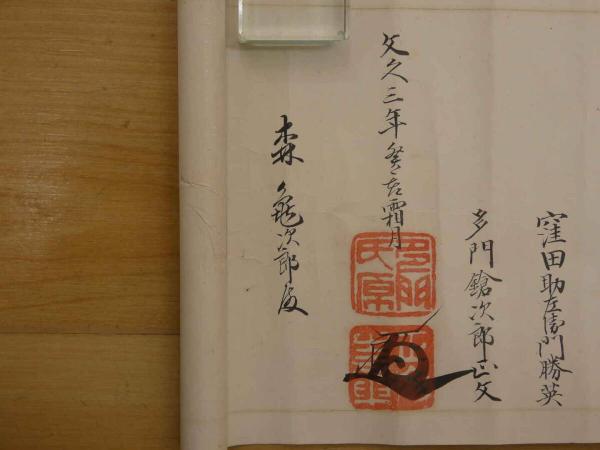 窪田助左衛門勝英
多門鎗次郎正文
文久三年癸亥霜月
森亀次郎殿